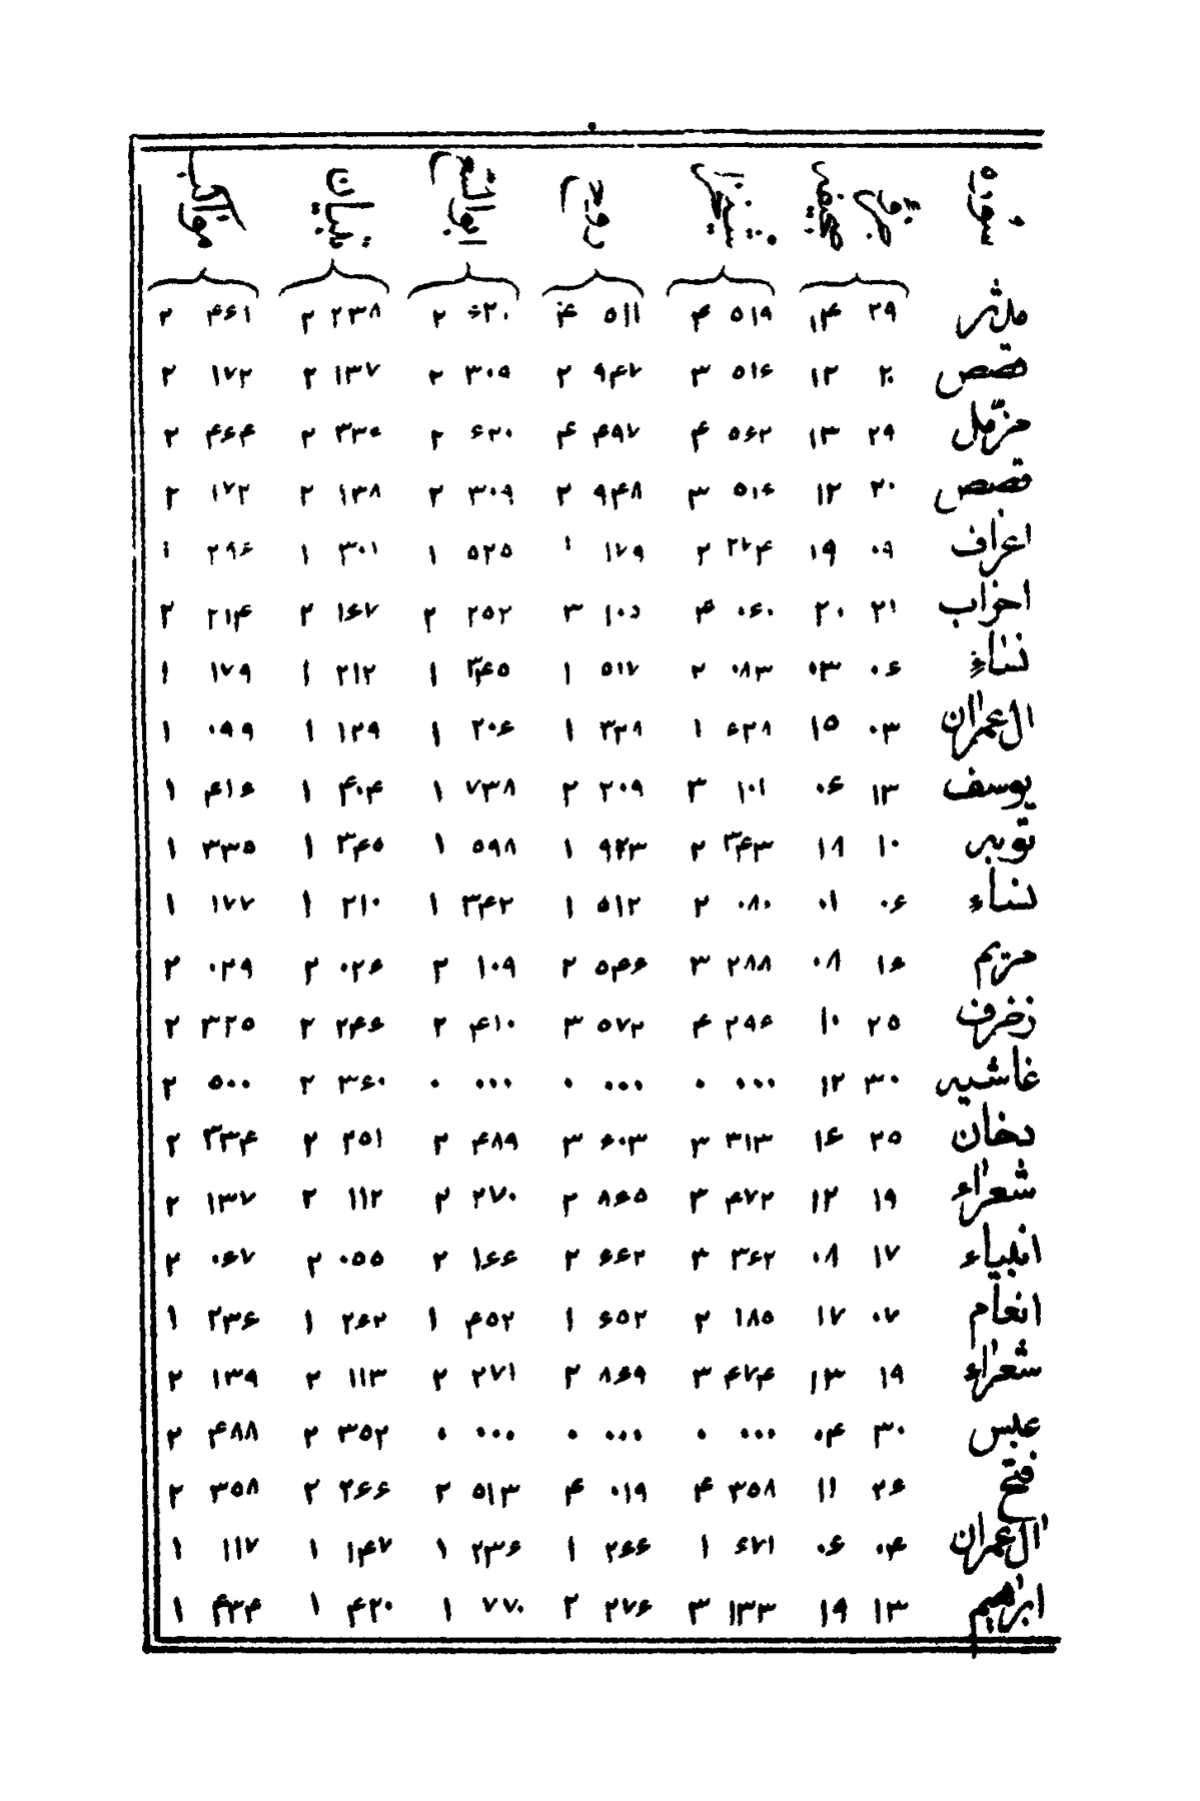 سوره جزء صفحه شیخنا روح ابوالفتح تبیان
مدثر ۲۹ ۱۴ ۵۱۹ ۴ ۵۱۱ ۴ ۶۲۰ ۲ ۲۳۸ ۲ ۴۶۱ ۲
قصص ۲۰ ۱۲ ۵۱۶ ۳ ۹۴۷ ۲ ۳۰۵ ۲ ۱۳۷ ۲ ۱۷۲ ۲
مزّمل ۲۹ ۱۳ ۵۶۲ ۴ ۴۹۷ ۴ ۶۲۰ ۲ ۳۳۵ ۲ ۴۶۴ ۲
قصص ۲۰ ۱۲ ۵۱۶ ۳ ۹۴۸ ۲ ۳۰۹ ۲ ۱۳۸ ۲ ۱۷۲ ۲
اعراف ۰۹ ۱۹ ۲۷۴ ۲ ۱۷۹ ۱ ۵۲۵ ۱ ۳۰۱ ۱ ۲۹۶ ۱
احزاب ۲۱ ۲۰ ۰۶۰ ۴ ۱۰۵ ۳ ۲۵۲ ۲ ۱۶۷ ۲ ۲۱۴ ۲
نساء ۰۶ ۰۳ ۰۸۳ ۲ ۵۱۷ ۱ ۳۴۵ ۱ ۲۱۲ ۱ ۱۷۹ ۱
ال عمران ۰۳ ۱۵ ۶۲۸ ۱ ۲۲۸ ۱ ۲۰۶ ۱ ۱۲۹ ۱ ۰۹۹ ۱
یوسف ۱۳ ۰۶ ۱۰۱ ۳ ۲۰۹ ۲ ۷۳۸ ۱ ۴۰۴ ۱ ۴۱۶ ۱
توبه ۱۰ ۱۸ ۳۴۳ ۲ ۹۲۳ ۱ ۵۹۸ ۱ ۳۴۵ ۱ ۳۳۵ ۱
نساء ۰۶ ۰۱ ۰۸۰ ۲ ۵۱۲ ۱ ۳۴۲ ۱ ۲۱۰ ۱ ۱۷۷ ۱
مریم ۱۶ ۰۸ ۲۸۸ ۳ ۵۴۶ ۲ ۱۰۹ ۲ ۰۲۶ ۲ ۰۲۹ ۲
زخرف ۲۵ ۱۰ ۲۹۶ ۴ ۵۷۲ ۳ ۴۱۰ ۲ ۲۴۶ ۲ ۳۲۵ ۲
غاشیه ۳۰ ۱۲ ۰۰۰ ۰ ۰۰۰ ۰ ۰۰۰ ۰ ۳۶۰ ۲ ۵۰۰ ۲
دخان ۲۵ ۱۶ ۳۱۳ ۳ ۶۰۳ ۳ ۴۸۹ ۲ ۲۵۱ ۲ ۳۳۴ ۲
شعراء ۱۹ ۱۲ ۴۷۲ ۳ ۸۶۵ ۲ ۲۷۰ ۲ ۱۱۲ ۲ ۱۳۷ ۲
انبیاء ۱۷ ۰۸ ۳۶۲ ۳ ۶۶۲ ۲ ۱۶۶ ۲ ۰۵۵ ۲ ۰۶۷ ۲
انعام ۰۷ ۱۷ ۱۸۵ ۲ ۶۵۲ ۱ ۴۵۲ ۱ ۲۶۲ ۱ ۲۳۶ ۱
شعراء ۱۹ ۱۳ ۴۷۴ ۳ ۸۶۹ ۲ ۲۷۱ ۲ ۱۱۳ ۲ ۱۳۹ ۲
عبس ۳۰ ۰۴ ۰۰۰ ۰ ۰۰۰ ۰ ۰۰۰ ۰ ۳۵۲ ۲ ۴۸۸ ۲
فتح ۲۶ ۱۱ ۳۵۸ ۴ ۰۱۹ ۴ ۵۱۳ ۲ ۲۶۶ ۲ ۳۵۸ ۲
ال عمران ۰۴ ۰۶ ۶۷۱ ۱ ۲۶۶ ۱ ۲۳۶ ۱ ۱۴۷ ۱ ۱۱۷ ۱
ابراهیم ۱۳ ۱۹ ۱۳۳ ۳ ۲۷۶ ۲ ۷۷۰ ۱ ۴۲۰ ۱ ۴۳۴ ۱